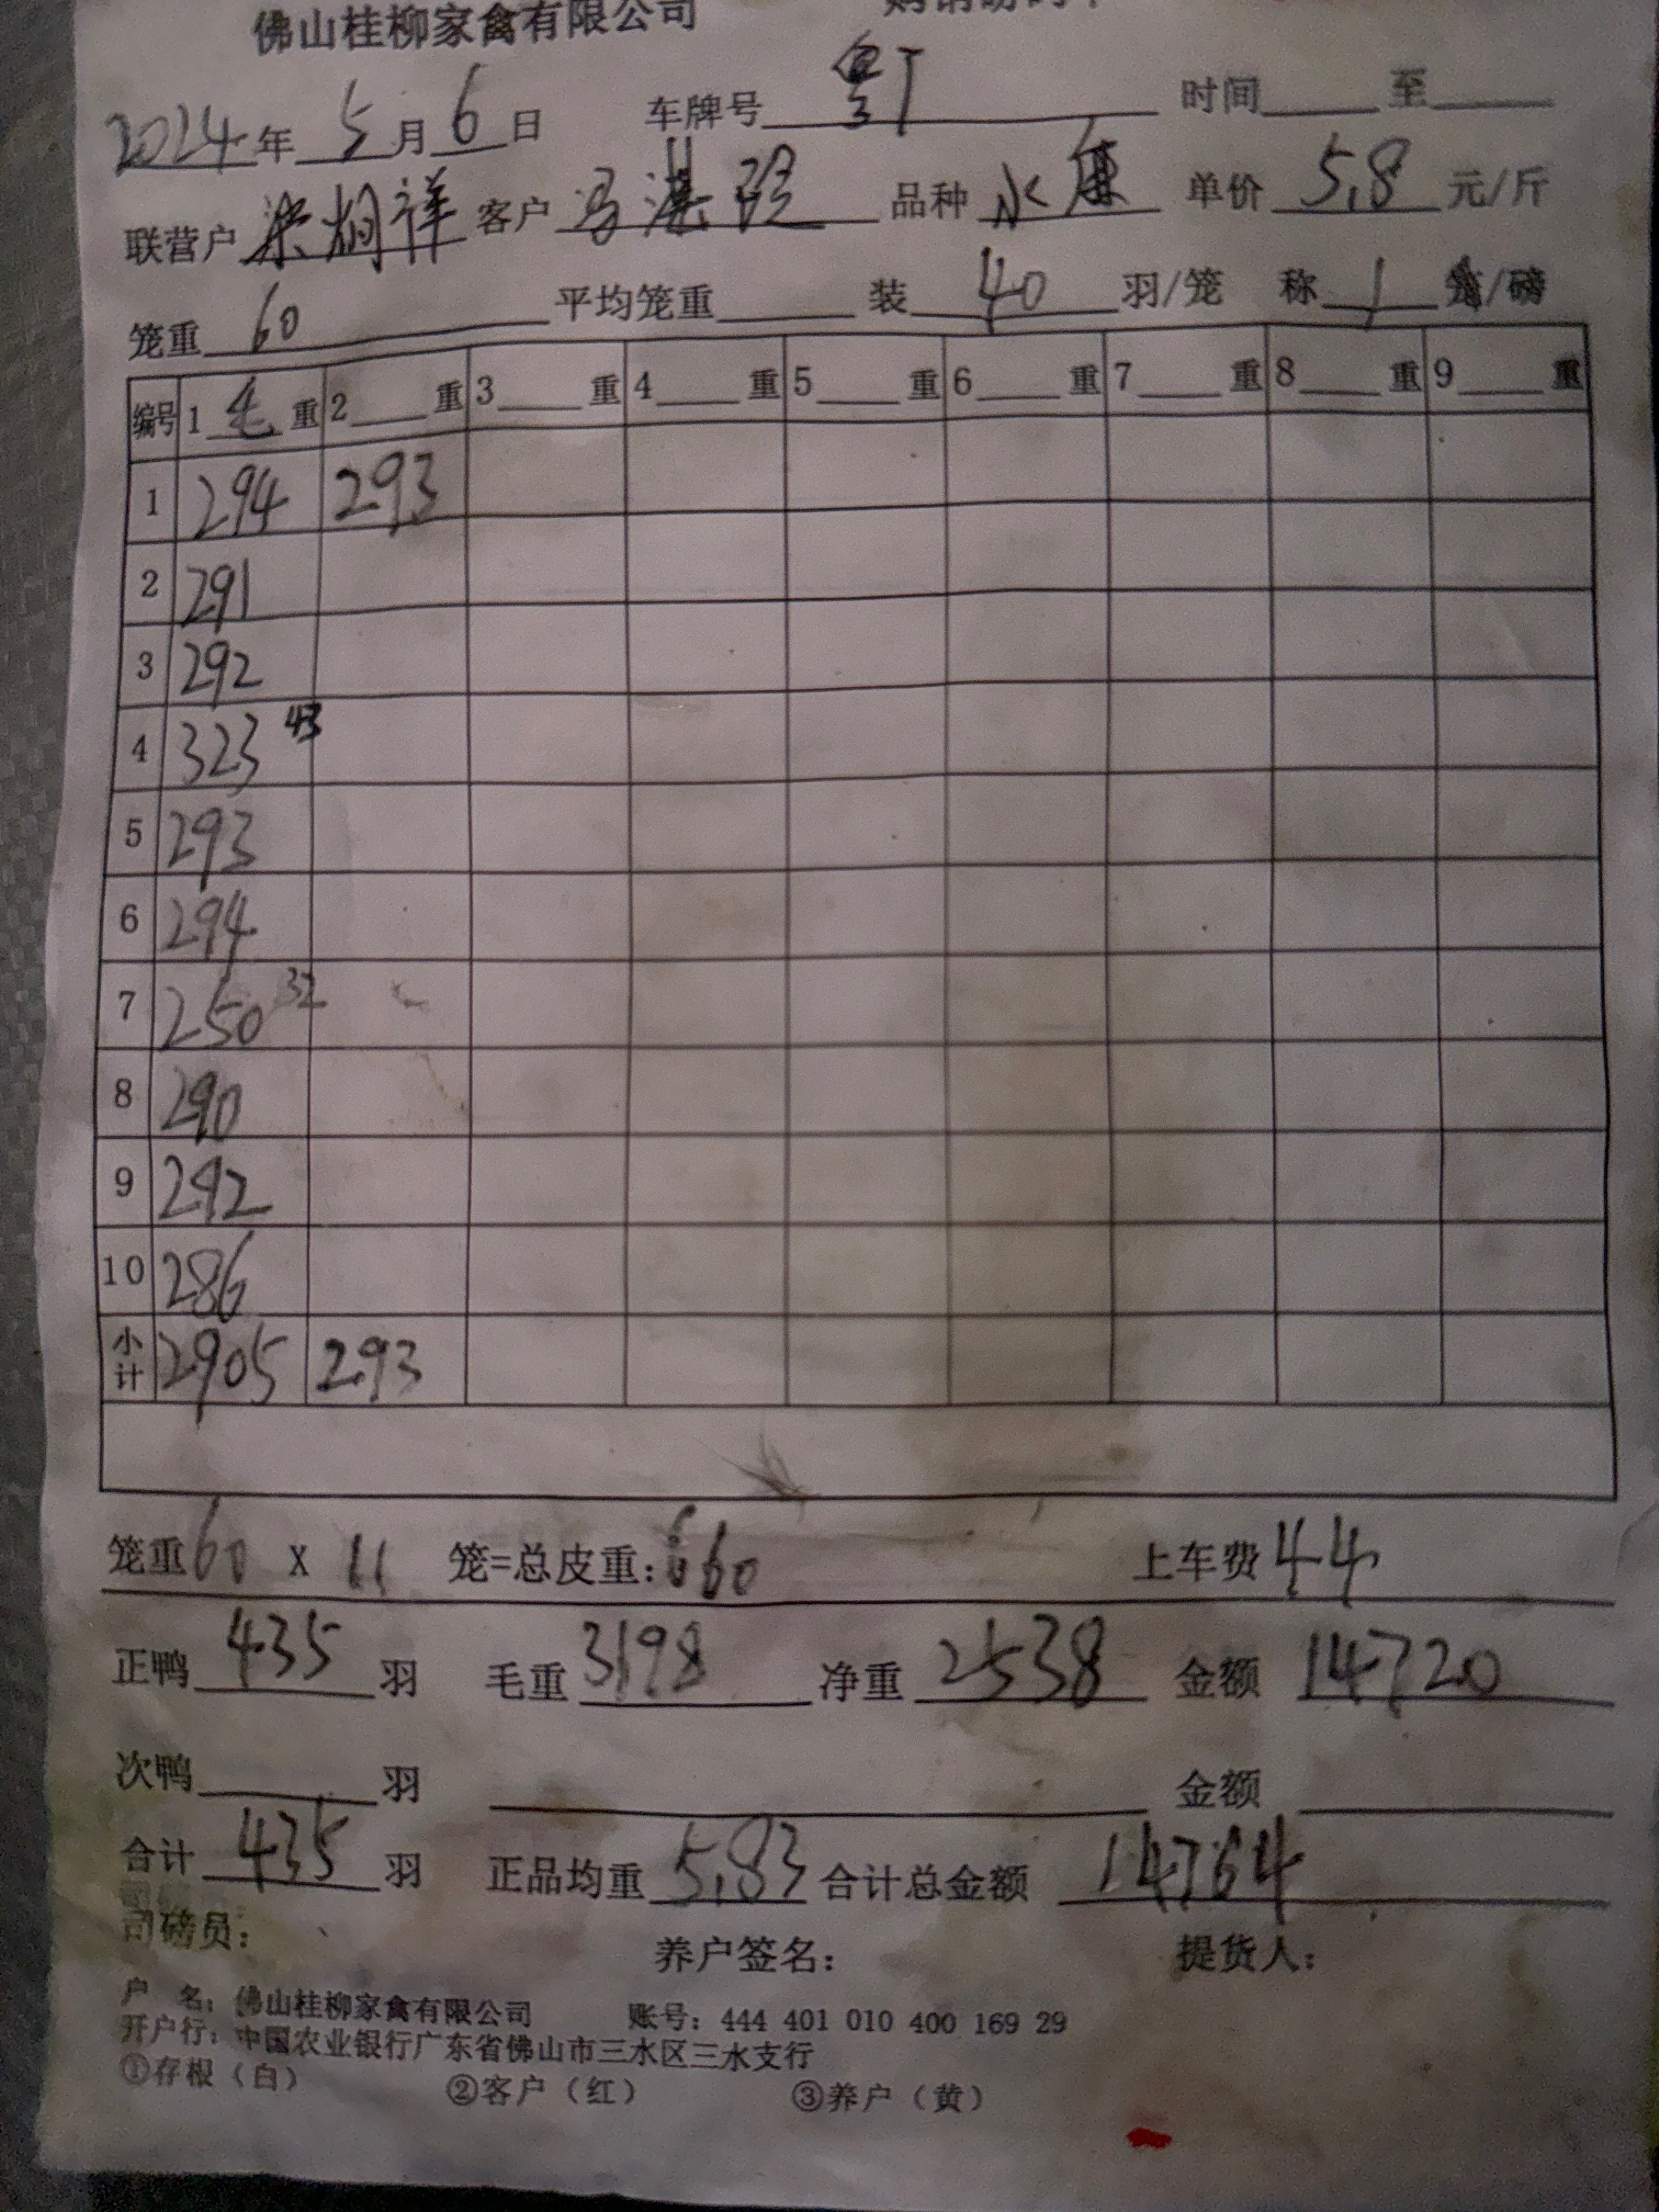 佛山桂柳家禽有限公司
2024年 5月 6日 车牌号 粤J 时间 至
联营户 梁炯祥 客户 冯湛 品种 水 单价 5.8 元/斤
笼重 60 平均笼重 装 40 羽/笼 称 1 笼/磅
编号 1 毛 重 2 重 3 重 4 重 5 重 6 重 7 重 8 重 9 重
1 294 293
2 291
3 292
4 323 43
5 293
6 294
7 250 32
8 290
9 292
10 286
小计 2905 293
笼重 60 X 11 笼=总皮重: 660 上车费 44
正鸭 435 羽 毛重 3198 净重 2538 金额 14720
次鸭 羽 金额
合计 435 羽 正品均重 5.83 合计总金额 14764
司磅员: 养户签名: 提货人:
户 名: 佛山桂柳家禽有限公司 账号: 444 401 010 400 169 29
开户行: 中国农业银行广东省佛山市三水区三水支行
①存根(白) ②客户(红) ③养户(黄)